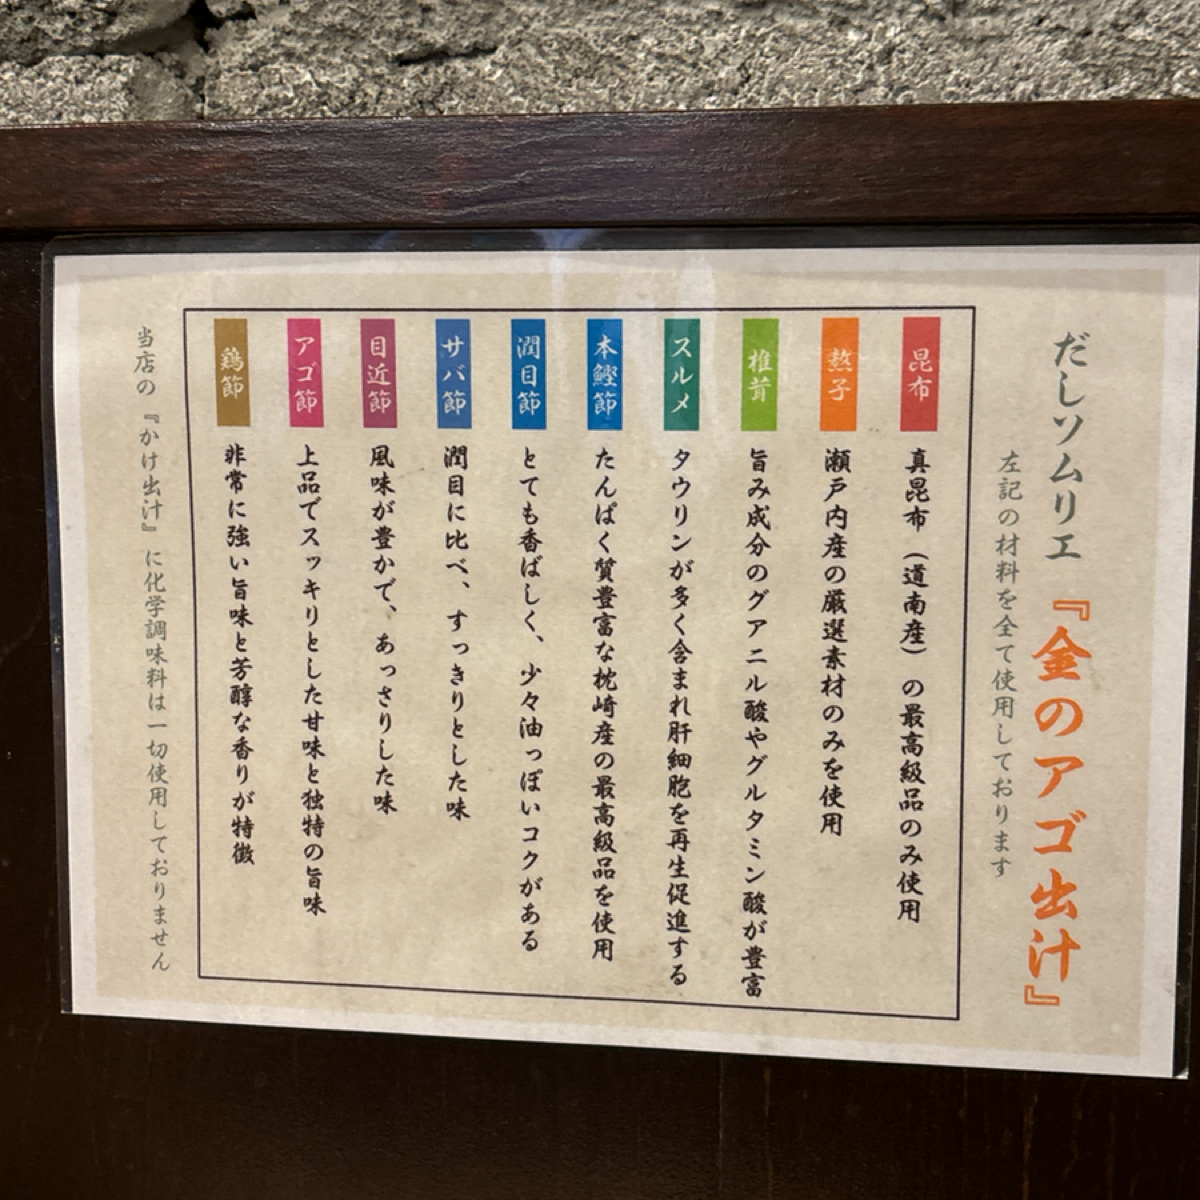 だしソムリエ『金のアゴ出汁』
左記の材料を全て使用しております
昆布 真昆布（道南産）の最高級品のみ使用
熬子 瀬戸内産の厳選素材のみを使用
椎茸 旨み成分のグアニル酸やグルタミン酸が豊富
スルメ タウリンが多く含まれ肝細胞を再生促進する
本鰹節 たんぱく質豊富な枕崎産の最高級品を使用
潤目節 とても香ばしく、少々油っぽいコクがある
サバ節 潤目に比べ、すっきりとした味
目近節 風味が豊かで、あっさりした味
アゴ節 上品でスッキリとした甘味と独特の旨味
鶏節 非常に強い旨味と芳醇な香りが特徴
当店の『かけ出汁』に化学調味料は一切使用しておりません